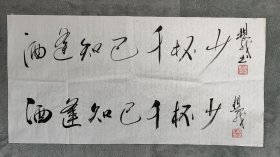 酒逢知己千杯少
酒逢知己千杯少